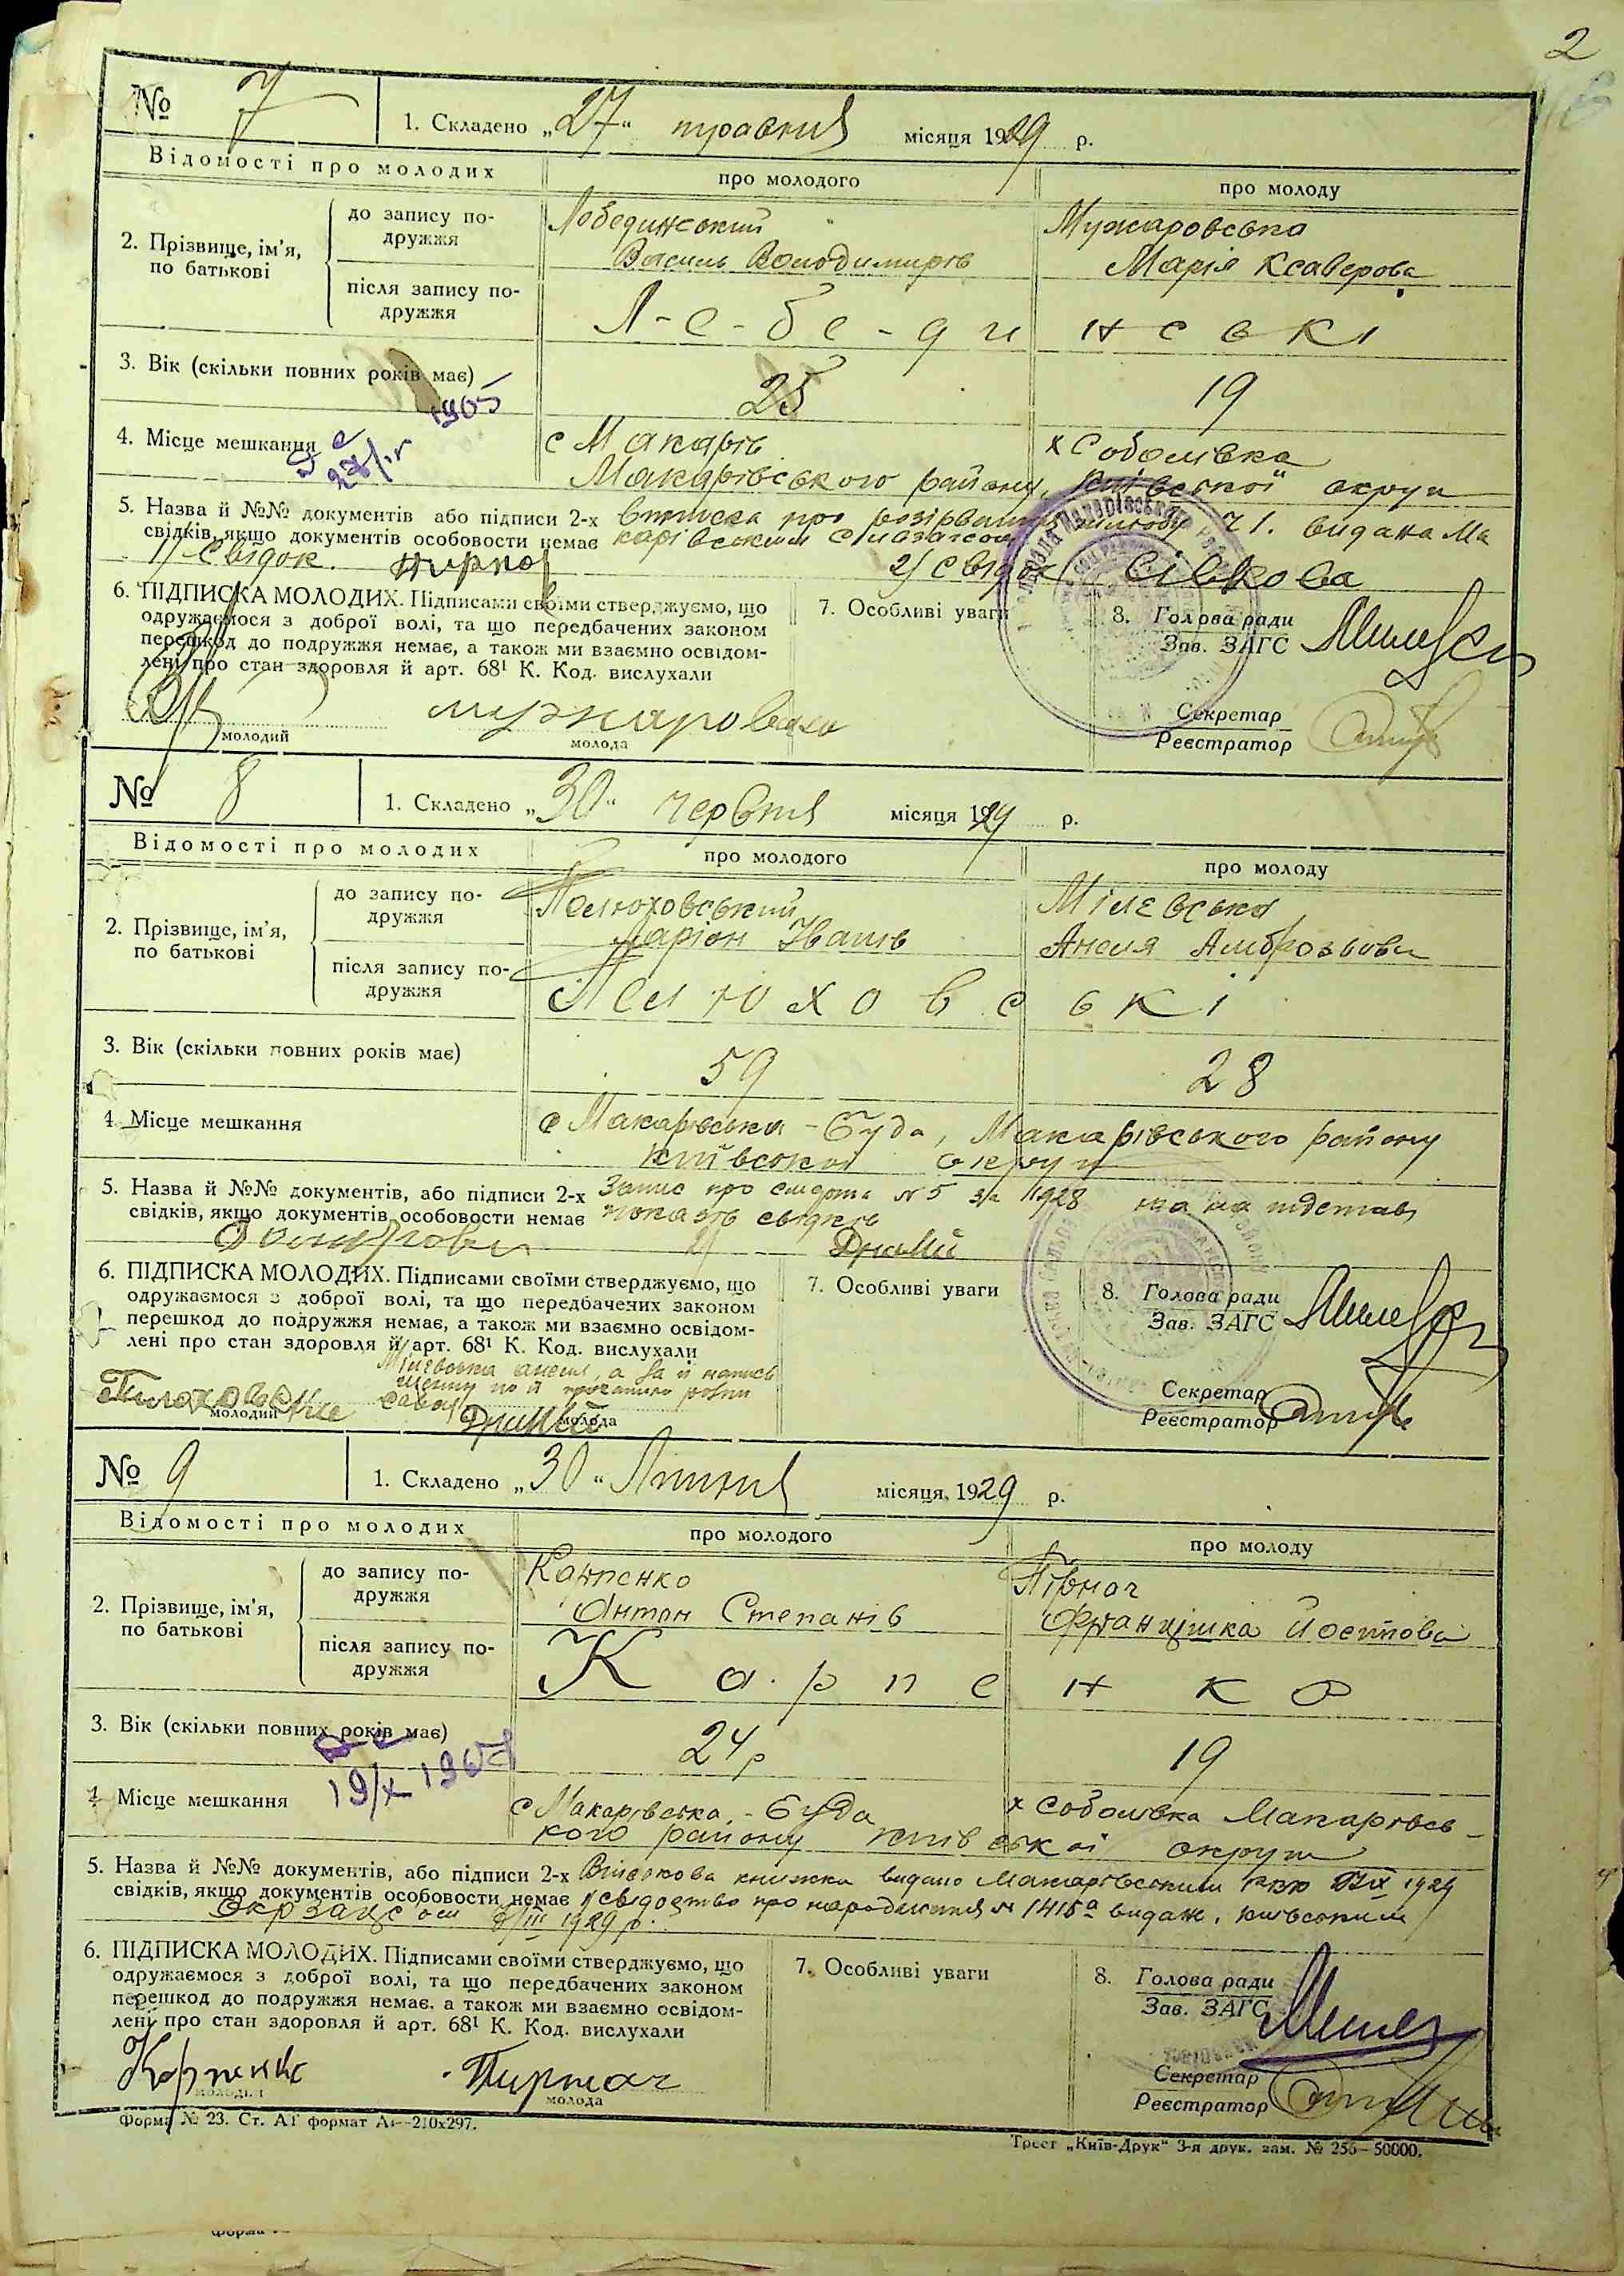 2
№ 7
1. Складено „27“ травня місяця 1929 р.
Відомості про молодих
про молодого
про молоду
2. Прізвище, ім'я, по батькові
до запису по-
дружжя
Лебединський
Василь Володимирів
Мужаровська
Марія Ксаверова
після запису по-
дружжя
Л-е-бе-ди нські
3. Вік (скільки повних років має)
1905
25
19
4. Місце мешкання
с Макарів
х Соболівка
Макарівського району, Київської округи
5. Назва й №№ документів або підписи 2-х
свідків, якщо документів особовости немає
виписка про розірвання шлюбу ч 1. видана Ма
карівським
1) Свідок.
2) Свідок
6. ПІДПИСКА МОЛОДИХ. Підписами своїми стверджуємо, що
одружаємося з доброї волі, та що передбачених законом
перешкод до подружжя немає, а також ми взаємно освідом-
лені про стан здоровля й арт. 68¹ К. Код. вислухали
молодий
Мужаровска
молода
7. Особливі уваги
8. Голова ради
Зав. ЗАГС
Секретар
Реєстратор
№ 8
1. Складено „30“ червня місяця 1929 р.
Відомості про молодих
про молодого
про молоду
2. Прізвище, ім'я,
по батькові
до запису по-
дружжя
Пелюховський
Ларіон Іванів
Мілевська
Анеля Амброзьова
після запису по-
дружжя
Пелюховські
3. Вік (скільки повних років має)
59
28
4. Місце мешкання
с Макарівська - Буда, Макарівського району
Київської округи
5. Назва й №№ документів, або підписи 2-х
свідків, якщо документів особовости немає
Запис про смерть №5 за 1928 та на підставі
показів свідків
2)
6. ПІДПИСКА МОЛОДИХ. Підписами своїми стверджуємо, що
одружаємося з доброї волі, та що передбачених законом
перешкод до подружжя немає, а також ми взаємно освідом-
лені про стан здоровля й арт. 68¹ К. Код. вислухали
Мілевська Анеля, а за її
молодий
молода
7. Особливі уваги
8. Голова ради
Зав. ЗАГС
Секретар
Реєстратор
№ 9
1. Складено „30“ Липня місяця 1929 р.
Відомості про молодих
про молодого
про молоду
2. Прізвище, ім'я,
по батькові
до запису по-
дружжя
Карпенко
Антон Степанів
Пірнач
Францішка Йосипова
після запису по-
дружжя
Карпенко
3. Вік (скільки повних років має)
24 р
19
4 Місце мешкання
с Макарівська - Буда
х Соболівка Макарівсь-
кого району Київської округи
5. Назва й №№ документів, або підписи 2-х
свідків, якщо документів особовости немає
Військова книжка видано Макарівським 1929
свідоцтво про народження № 1415а видан. Київським
1929 р.
6. ПІДПИСКА МОЛОДИХ. Підписами своїми стверджуємо, що
одружаємося з доброї волі, та що передбачених законом
перешкод до подружжя немає, а також ми взаємно освідом-
лені про стан здоровля й арт. 68¹ К. Код. вислухали
Карпенко
молодий
Пирнач
молода
7. Особливі уваги
8. Голова ради
Зав. ЗАГС
Секретар
Реєстратор
Форма № 23. Ст. А1 формат А4—210х297.
Трест „Київ-Друк“ 3-я друк. зам. № 256—50000.